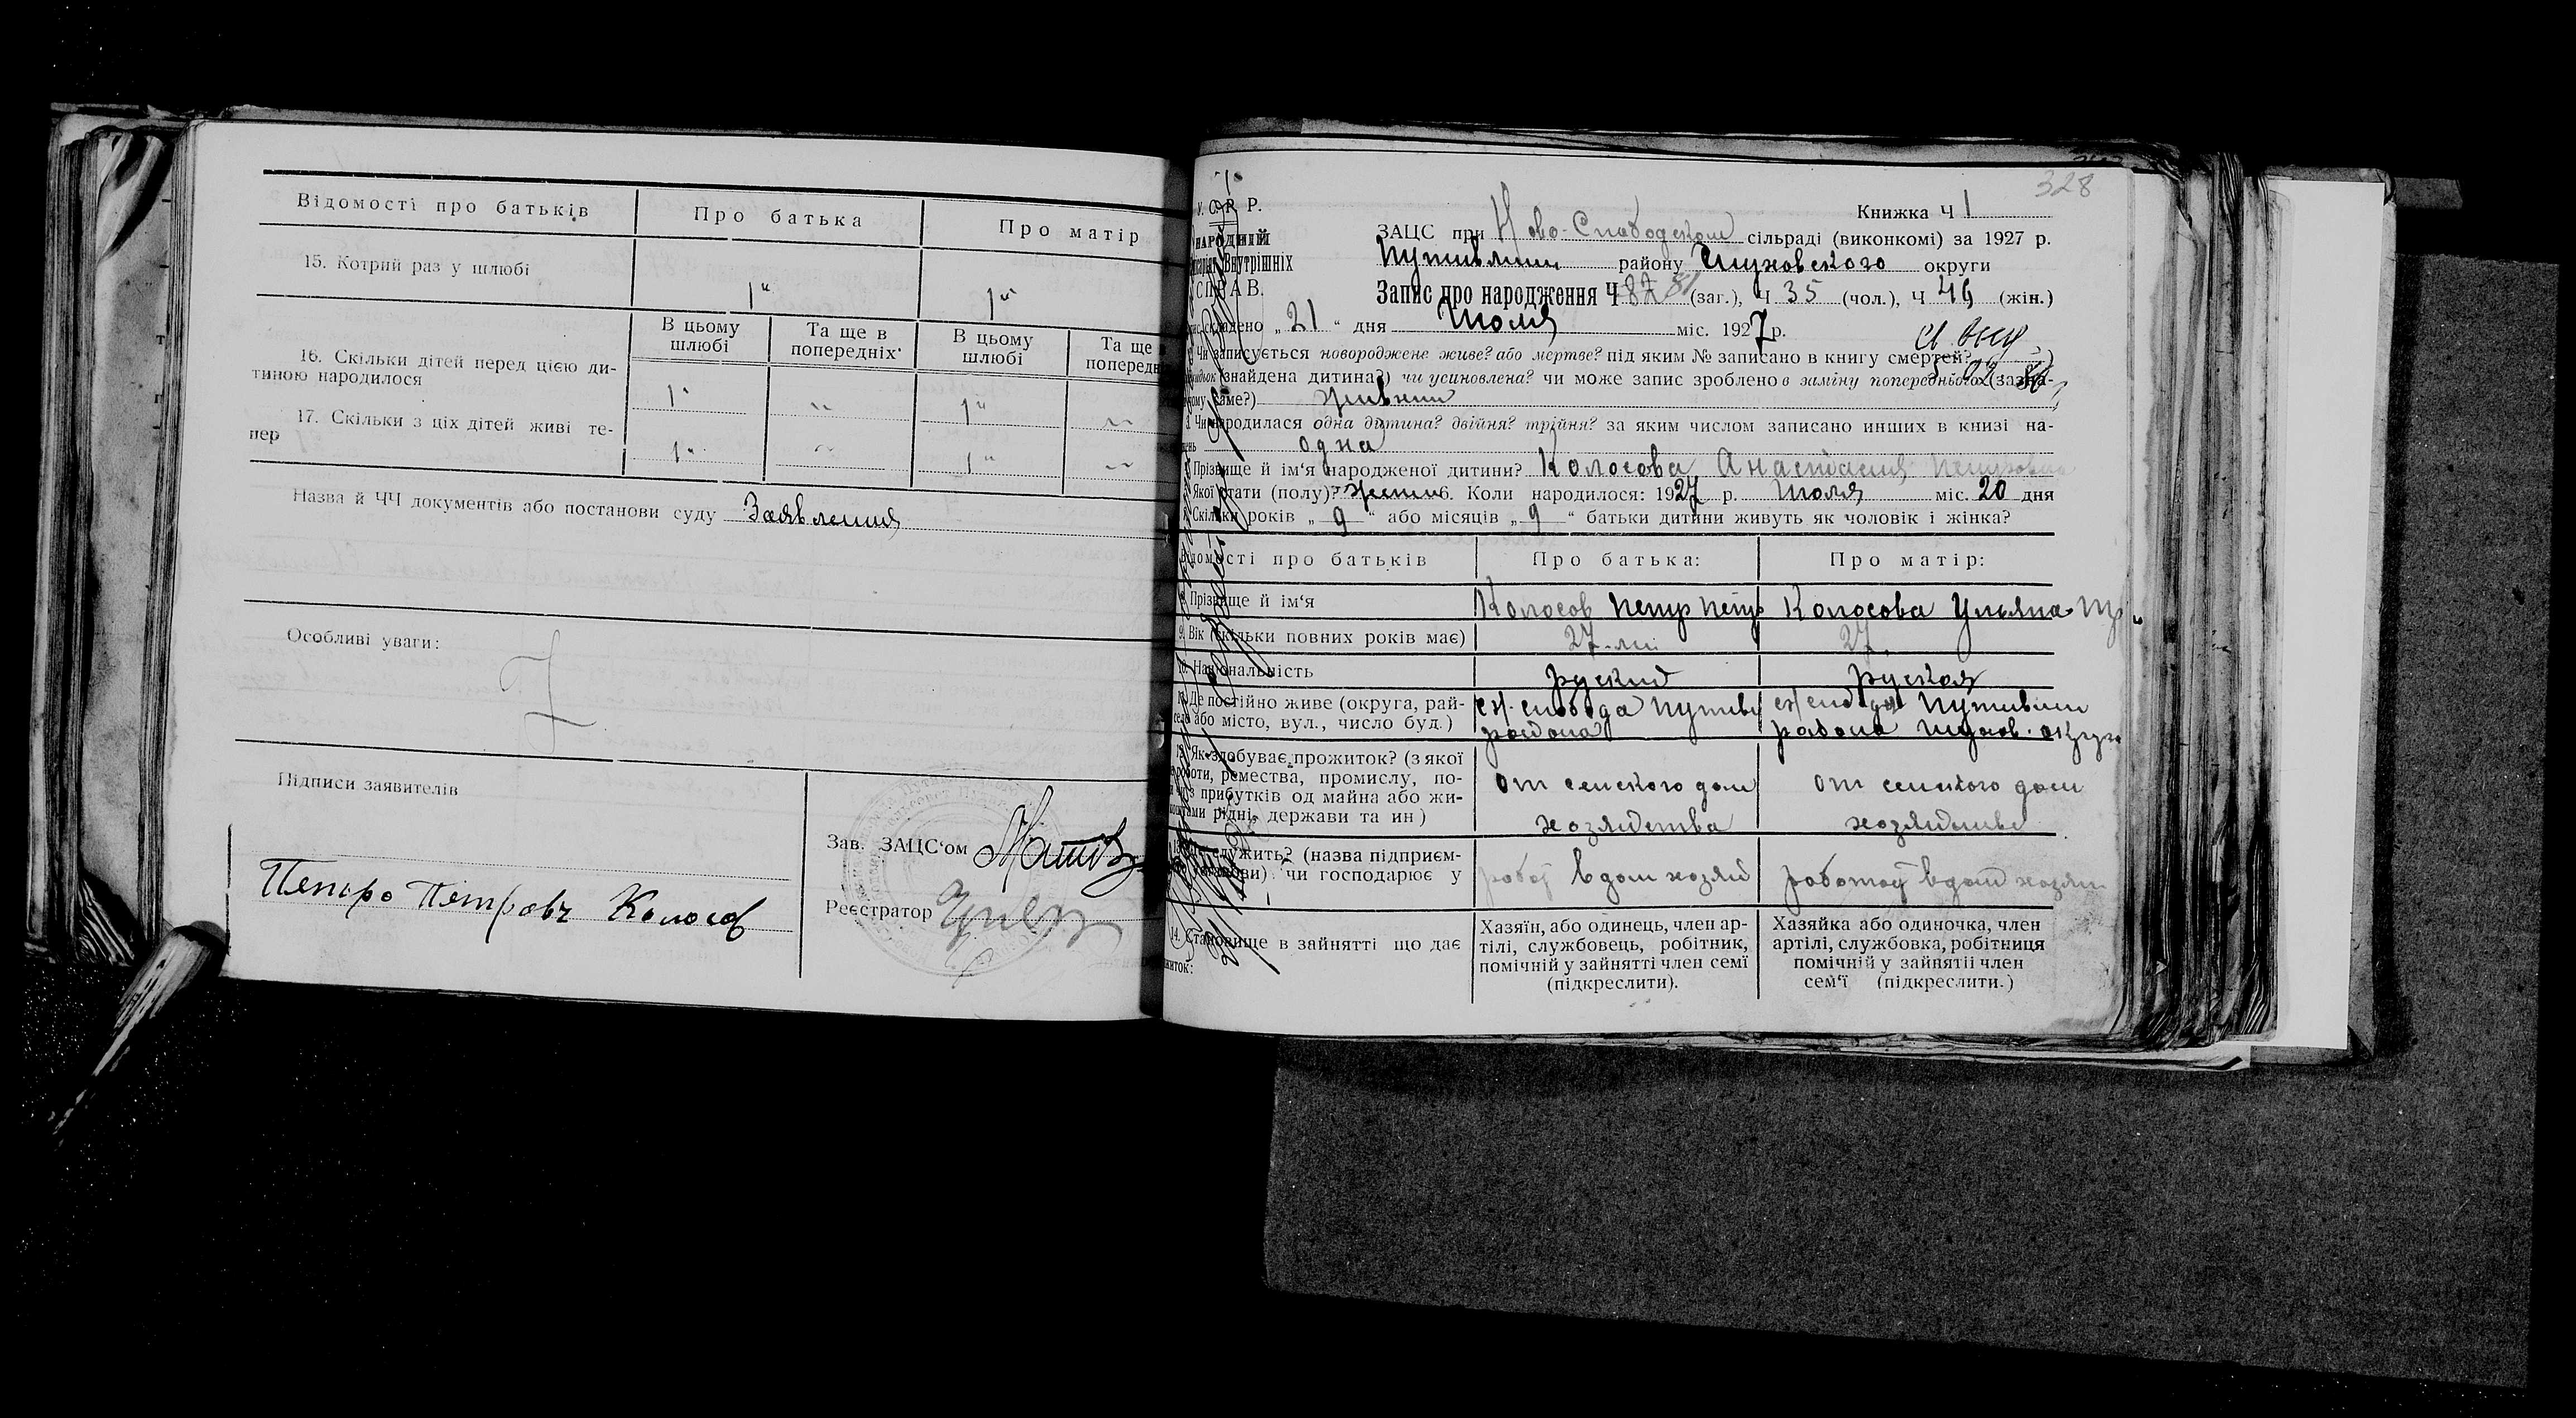 Відомості про батьків
Про батька
Про матір
15. Котрий раз у шлюбі
1"
1"
В цьому шлюбі
Та ще в попередніх
В цьому шлюбі
Та ще
16. Скільки дітей перед цією ди-
тиною народилося
1"
"
1"
"
17. Скільки з ціх дітей живі те-
пер
1"
"
1"
"
Назва й ЧЧ документів або постанови суду Заявления
Особливі уваги:
Z
Підписи заявителів
Петро Петровъ Колосов
Зав. ЗАЦС'ом
Реєстратор
328
У. С. Р. Р.
Книжка Ч 1
НАРОДНІЙ
ЗАЦС при Ново-Слободском сільраді (виконкомі) за 1927 р.
Внутрішніх
Путивльш району Глуховского округи
СПРАВ.
Запис про народження Ч 87 81 (заг.), Ч 35 (чол.), Ч 46 (жін.)
складено „ 21 “ дня Июля міс. 1927 р.
Чи записується новороджене живе? або мертве? під яким № записано в книгу смертей?
(знайдена дитина?) чи усиновлена? чи може запис зроблено в заміну попереднього (зазна-
саме?) живым
Чи народилася одна дитина? двійня? трійня? за яким числом записано инших в книзі на-
одна
Прізвище й ім'я народженої дитини? Колосова Анастасия Петровна
Якої стати (полу)? женш 6. Коли народилося: 1927 р. Июля міс. 20 дня
Скільки років „ 9 “ або місяців „ 9 “ батьки дитини живуть як чоловік і жінка?
Відомості про батьків
Про батька:
Про матір:
8. Прізвище й ім'я
Колосов Петр Петр
Колосова Ульяна
9. Вік (скільки повних років має)
27 лет
27.
10. Національність
руский
руская
11. Де постійно живе (округа, рай-
село або місто, вул., число буд.)
с Н. слобода Путивл
района
с Н слобода Путивльш
района Глухов. округи
12. Як здобуває прожиток? (з якої
роботи, ремества, промислу, по-
з прибутків од майна або жи-
рідні, держави та ин)
от сельского дом
хозяйства
от сельского дом
хозяйства
служить? (назва підприєм-
чи господарює у
работ в дом хозяй
работает в дом хозяй
14. Становище в зайнятті що дає
Хазяїн, або одинець, член ар-
тілі, службовець, робітник,
помічній у зайнятті член семї
(підкреслити).
Хазяйка або одиночка, член
артілі, службовка, робітниця
помічній у зайнятіі член
сем'ї (підкреслити.)